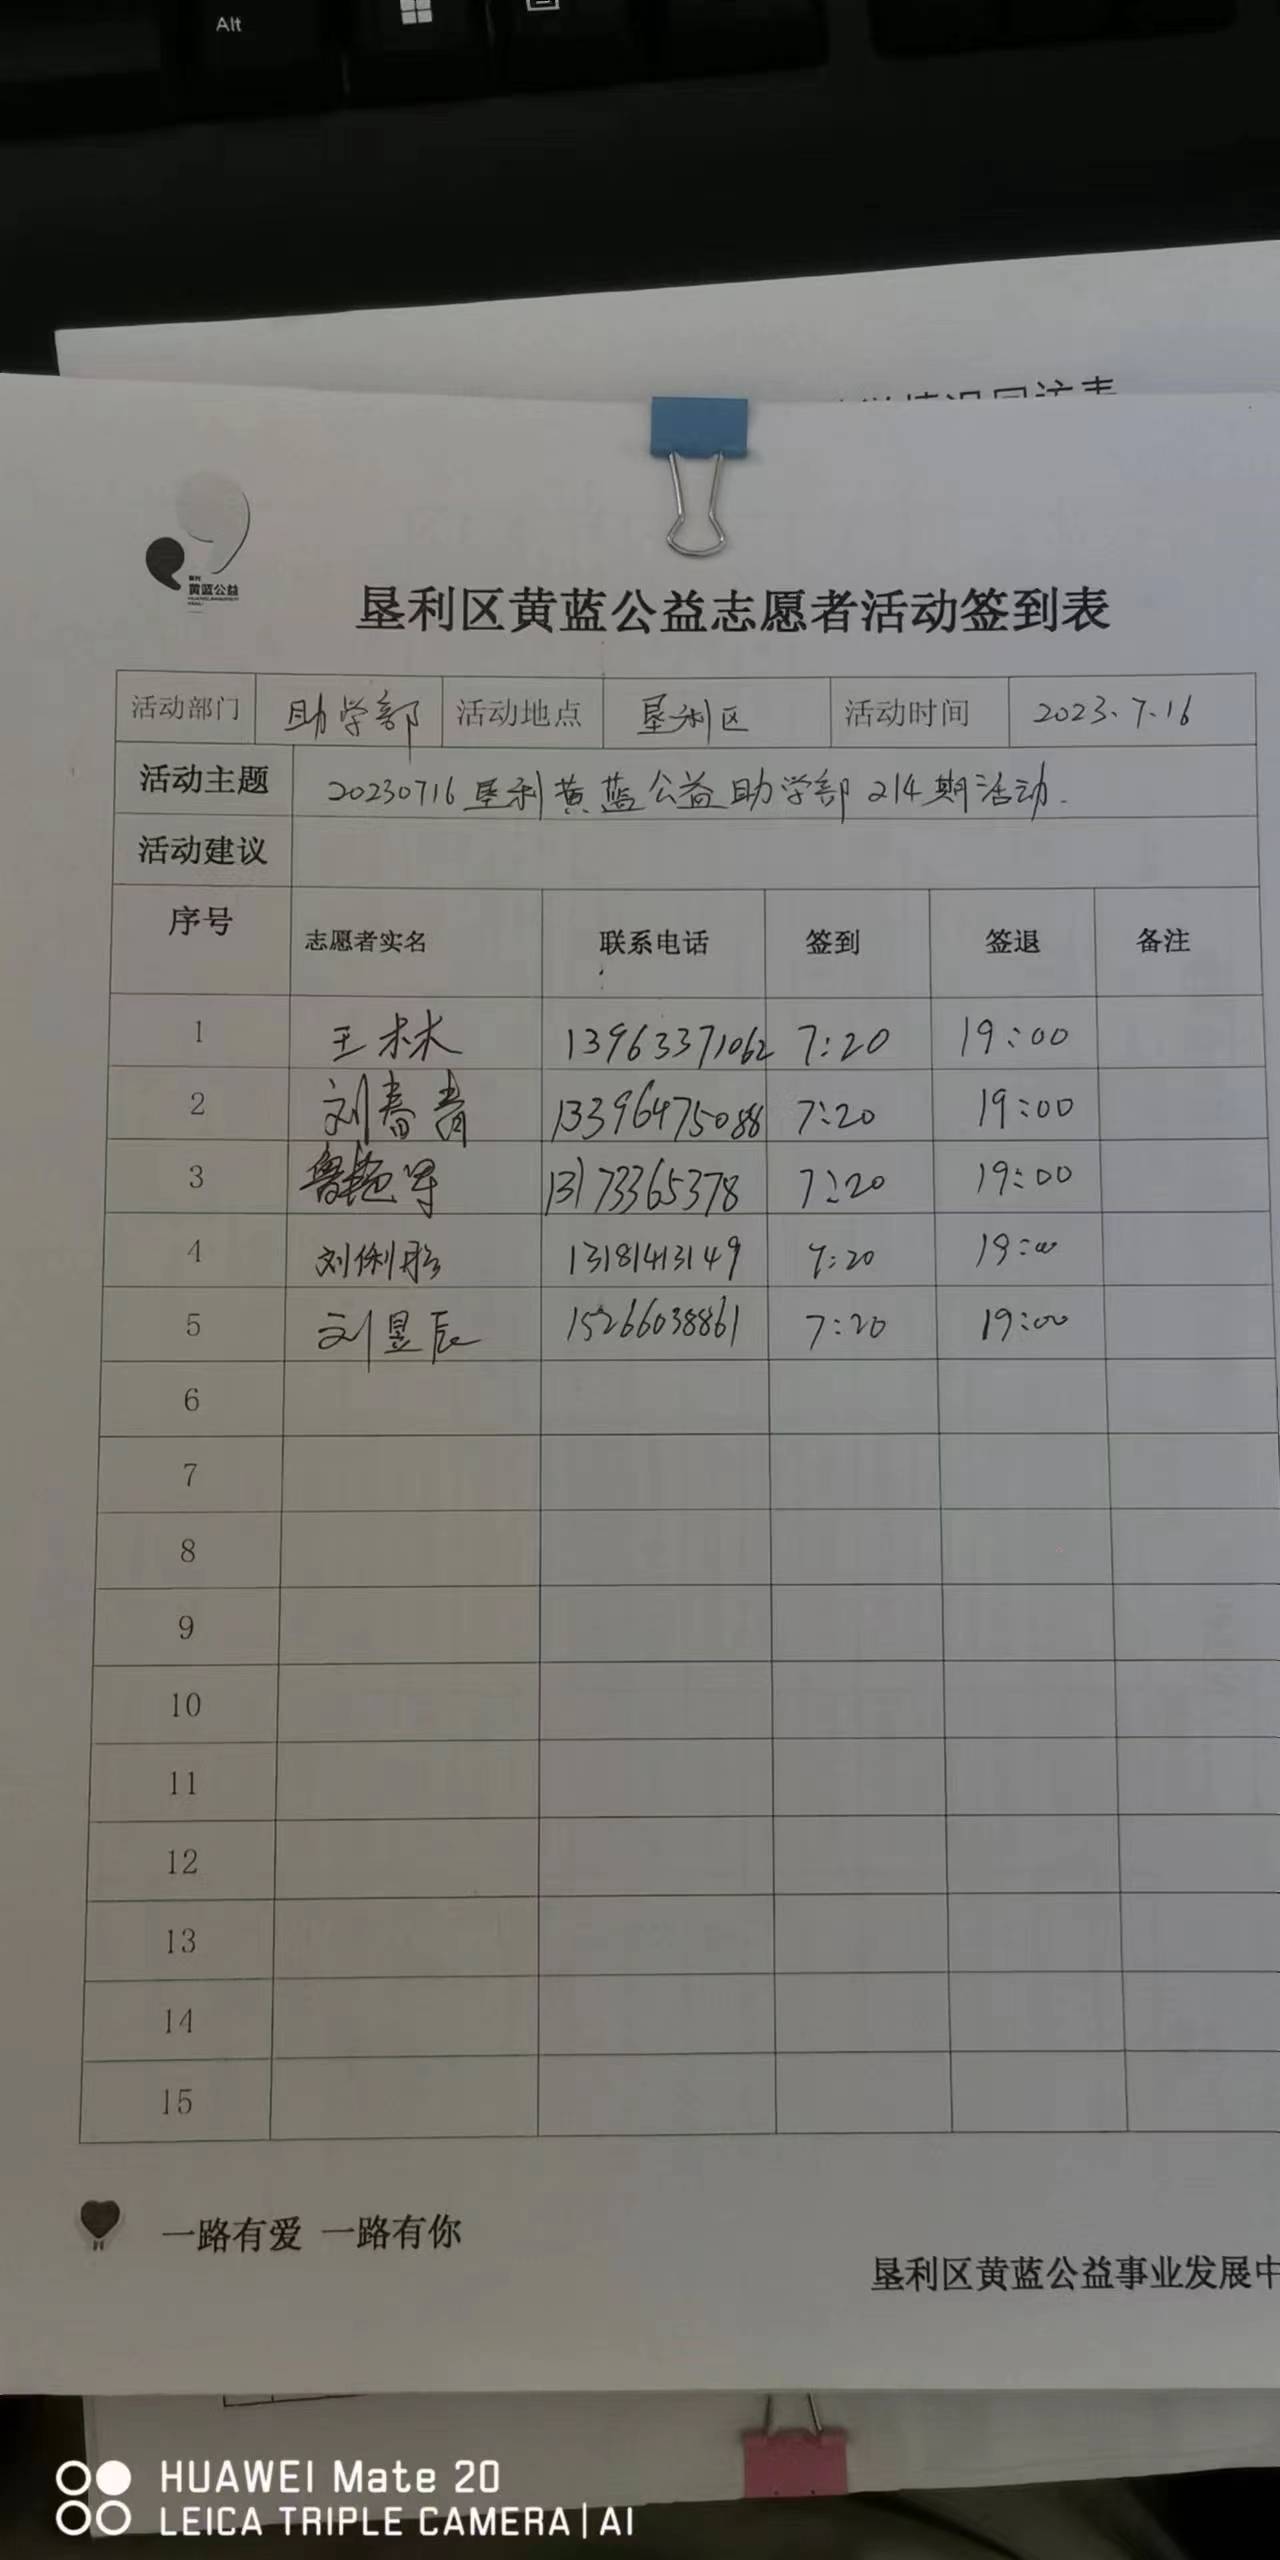 Alt
情况回访表
黄蓝公益
垦利区黄蓝公益志愿者活动签到表
活动部门 助学部 活动地点 垦利区 活动时间 2023.7.16
活动主题 20230716垦利黄蓝公益助学部214期活动.
活动建议
序号 志愿者实名 联系电话 签到 签退 备注
1 王林 13963371062 7:20 19:00
2 刘春青 13396475088 7:20 19:00
3 鲁艳军 13173365378 7:20 19:00
4 刘俐彤 13181413149 7:20 19:00
5 刘昱辰 15266038861 7:20 19:00
6
7
8
9
10
11
12
13
14
15
一路有爱 一路有你
垦利区黄蓝公益事业发展中
HUAWEI Mate 20
LEICA TRIPLE CAMERA | AI